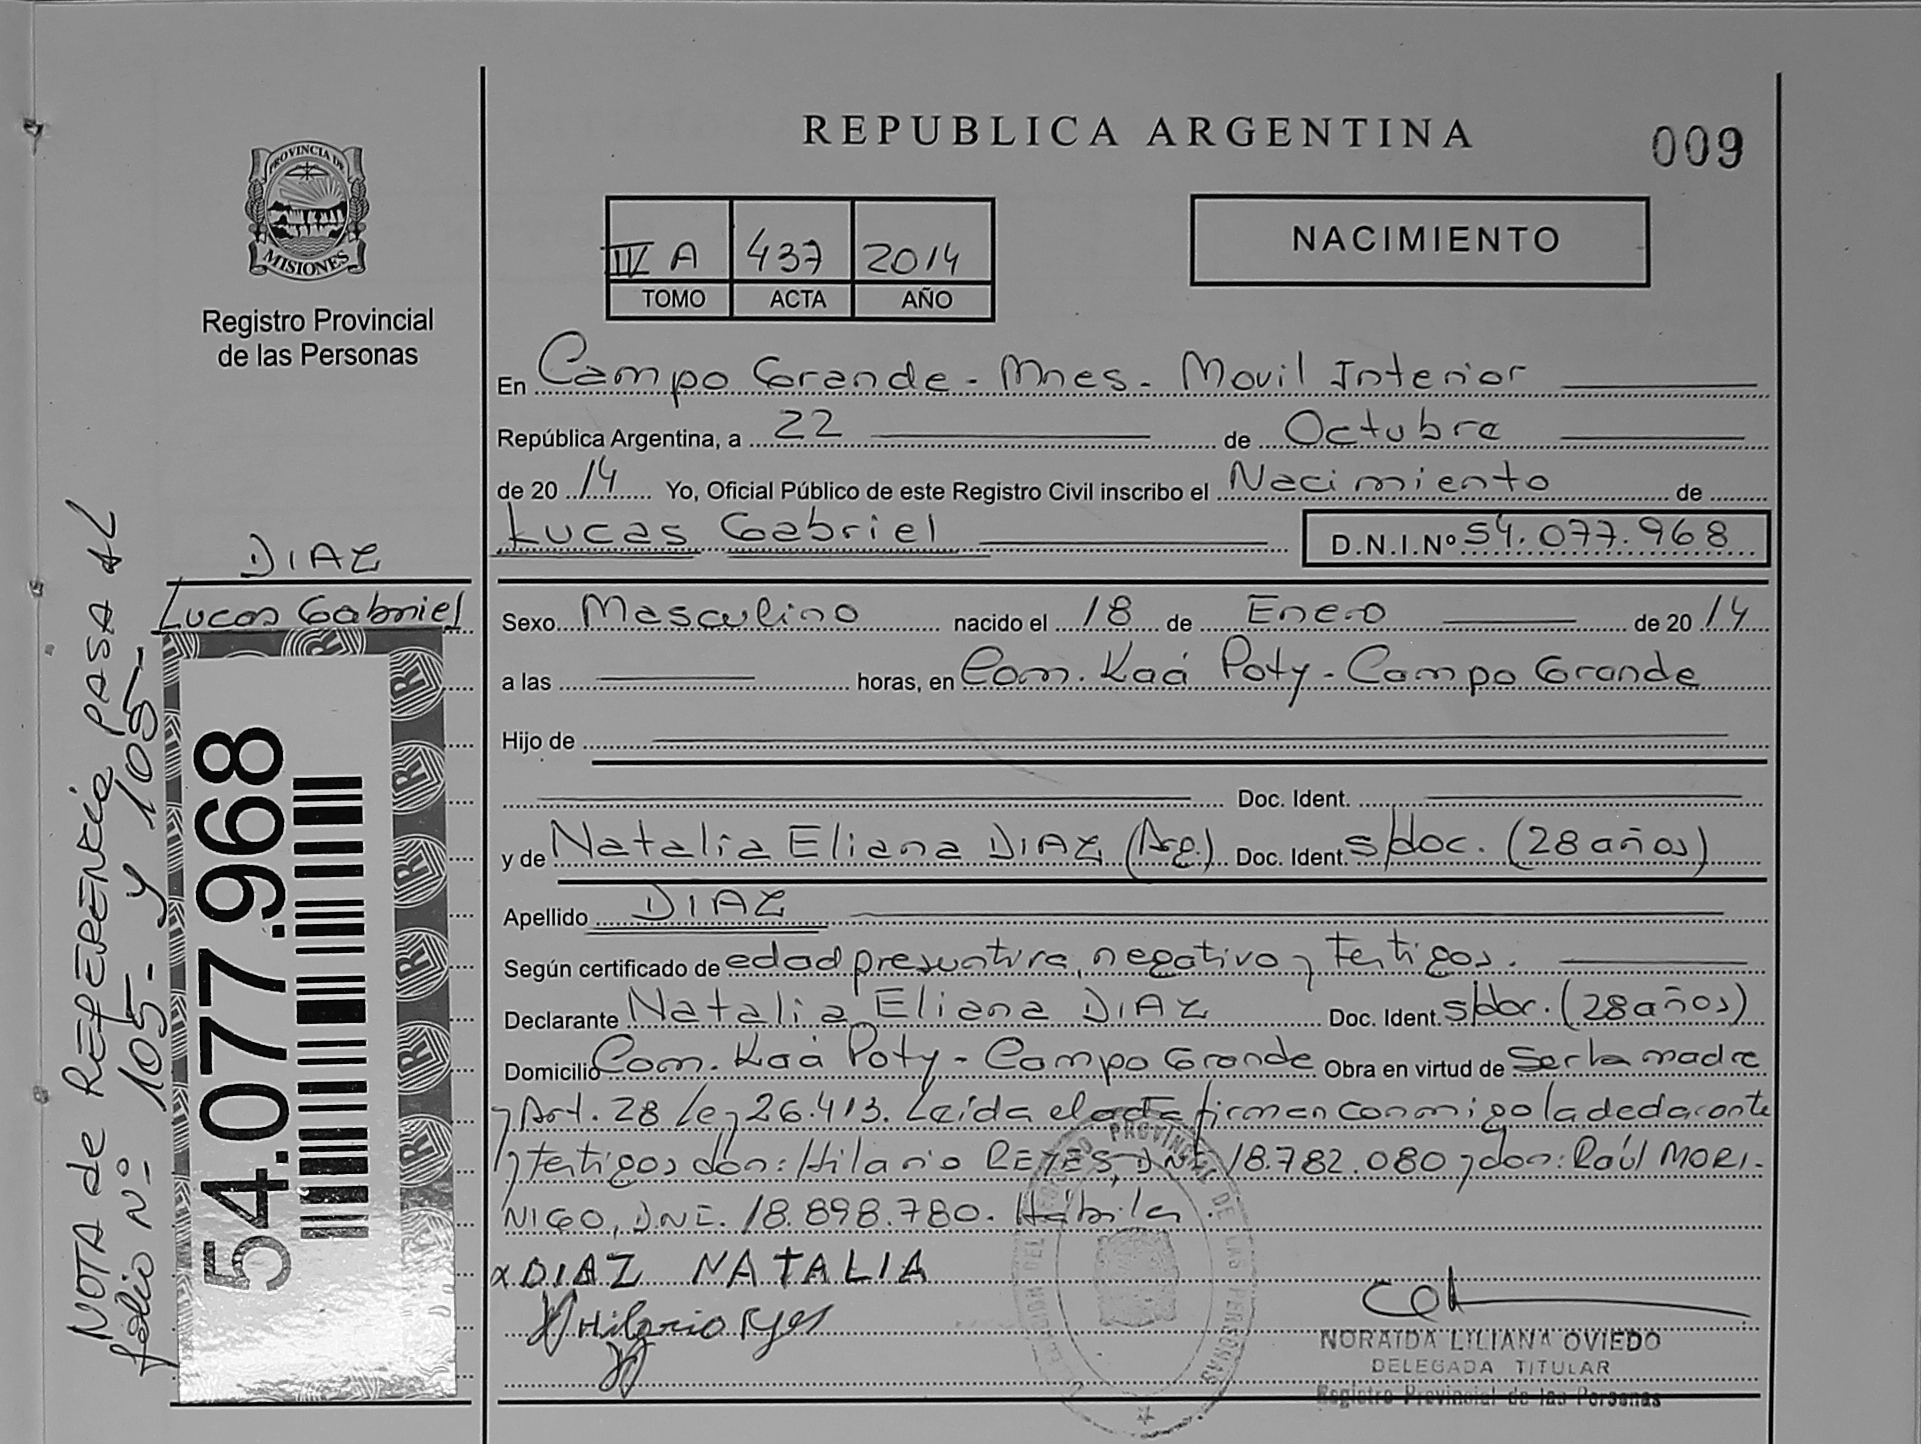 REPUBLICA ARGENTINA
009
PROVINCIA DE
MISIONES
Registro Provincial
de las Personas
IV A 437 2014
TOMO ACTA AÑO
NACIMIENTO
En Campo Grande - Mnes - Movil Interior
República Argentina, a 22 de Octubre
de 20 14 Yo, Oficial Público de este Registro Civil inscribo el Nacimiento de
Lucas Gabriel D.N.I.Nº 54.077.968
DIAZ
Lucas Gabriel
Sexo Masculino nacido el 18 de Enero de 20 14
a las horas, en Com. Kaá Poty - Campo Grande
Hijo de
Doc. Ident.
y de Natalia Eliana DIAZ (Arg.) Doc. Ident. s/doc. (28 años)
Apellido DIAZ
Según certificado de edad presuntiva, negativo y testigos.
Declarante Natalia Eliana DIAZ Doc. Ident. s/doc. (28 años)
Domicilio Com. Kaá Poty - Campo Grande Obra en virtud de Ser la madre
y Art. 28 Ley 26.413. Leída el acta firman conmigo la declarante
y testigos don: Hilario REYES, DNI. 18.782.080 y don: Raúl MORI-
NIGO, DNI. 18.898.780. Hábiles.
x DIAZ NATALIA
Hilario Reyes
NORAIDA LILIANA OVIEDO
DELEGADA TITULAR
Registro Provincial de las Personas
54.077.968
NOTA de REFERENCIA PASA AL
folio Nº 105- y 105-